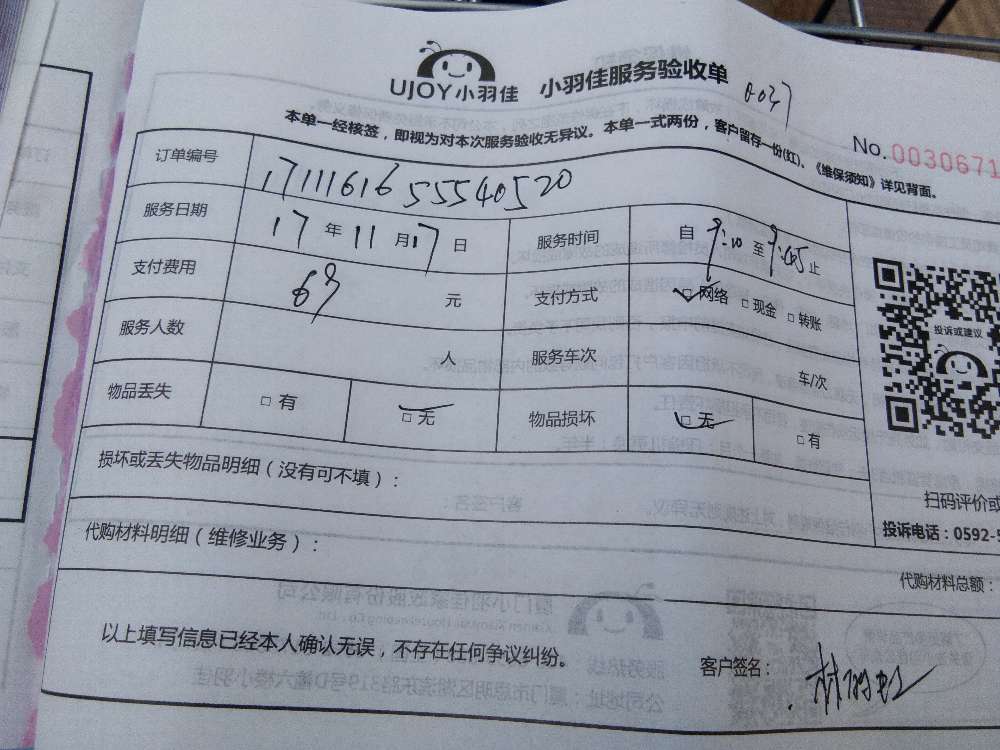 UJOY小羽佳 小羽佳服务验收单
No.0030671
本单一经核签，即视为对本次服务验收无异议。本单一式两份，客户留存一份(红)、《维保须知》详见背面。
订单编号 1711161655540520
服务日期 17年11月17日 服务时间 自9:10至9:45止
支付费用 63元 支付方式 □网络 □现金 □转账
服务人数 人 服务车次 车/次
物品丢失 □有 □无 物品损坏 □无 □有
投诉或建议
损坏或丢失物品明细（没有可不填）：
扫码评价或
投诉电话：0592-
代购材料明细（维修业务）：
代购材料总额：
以上填写信息已经本人确认无误，不存在任何争议纠纷。
客户签名：